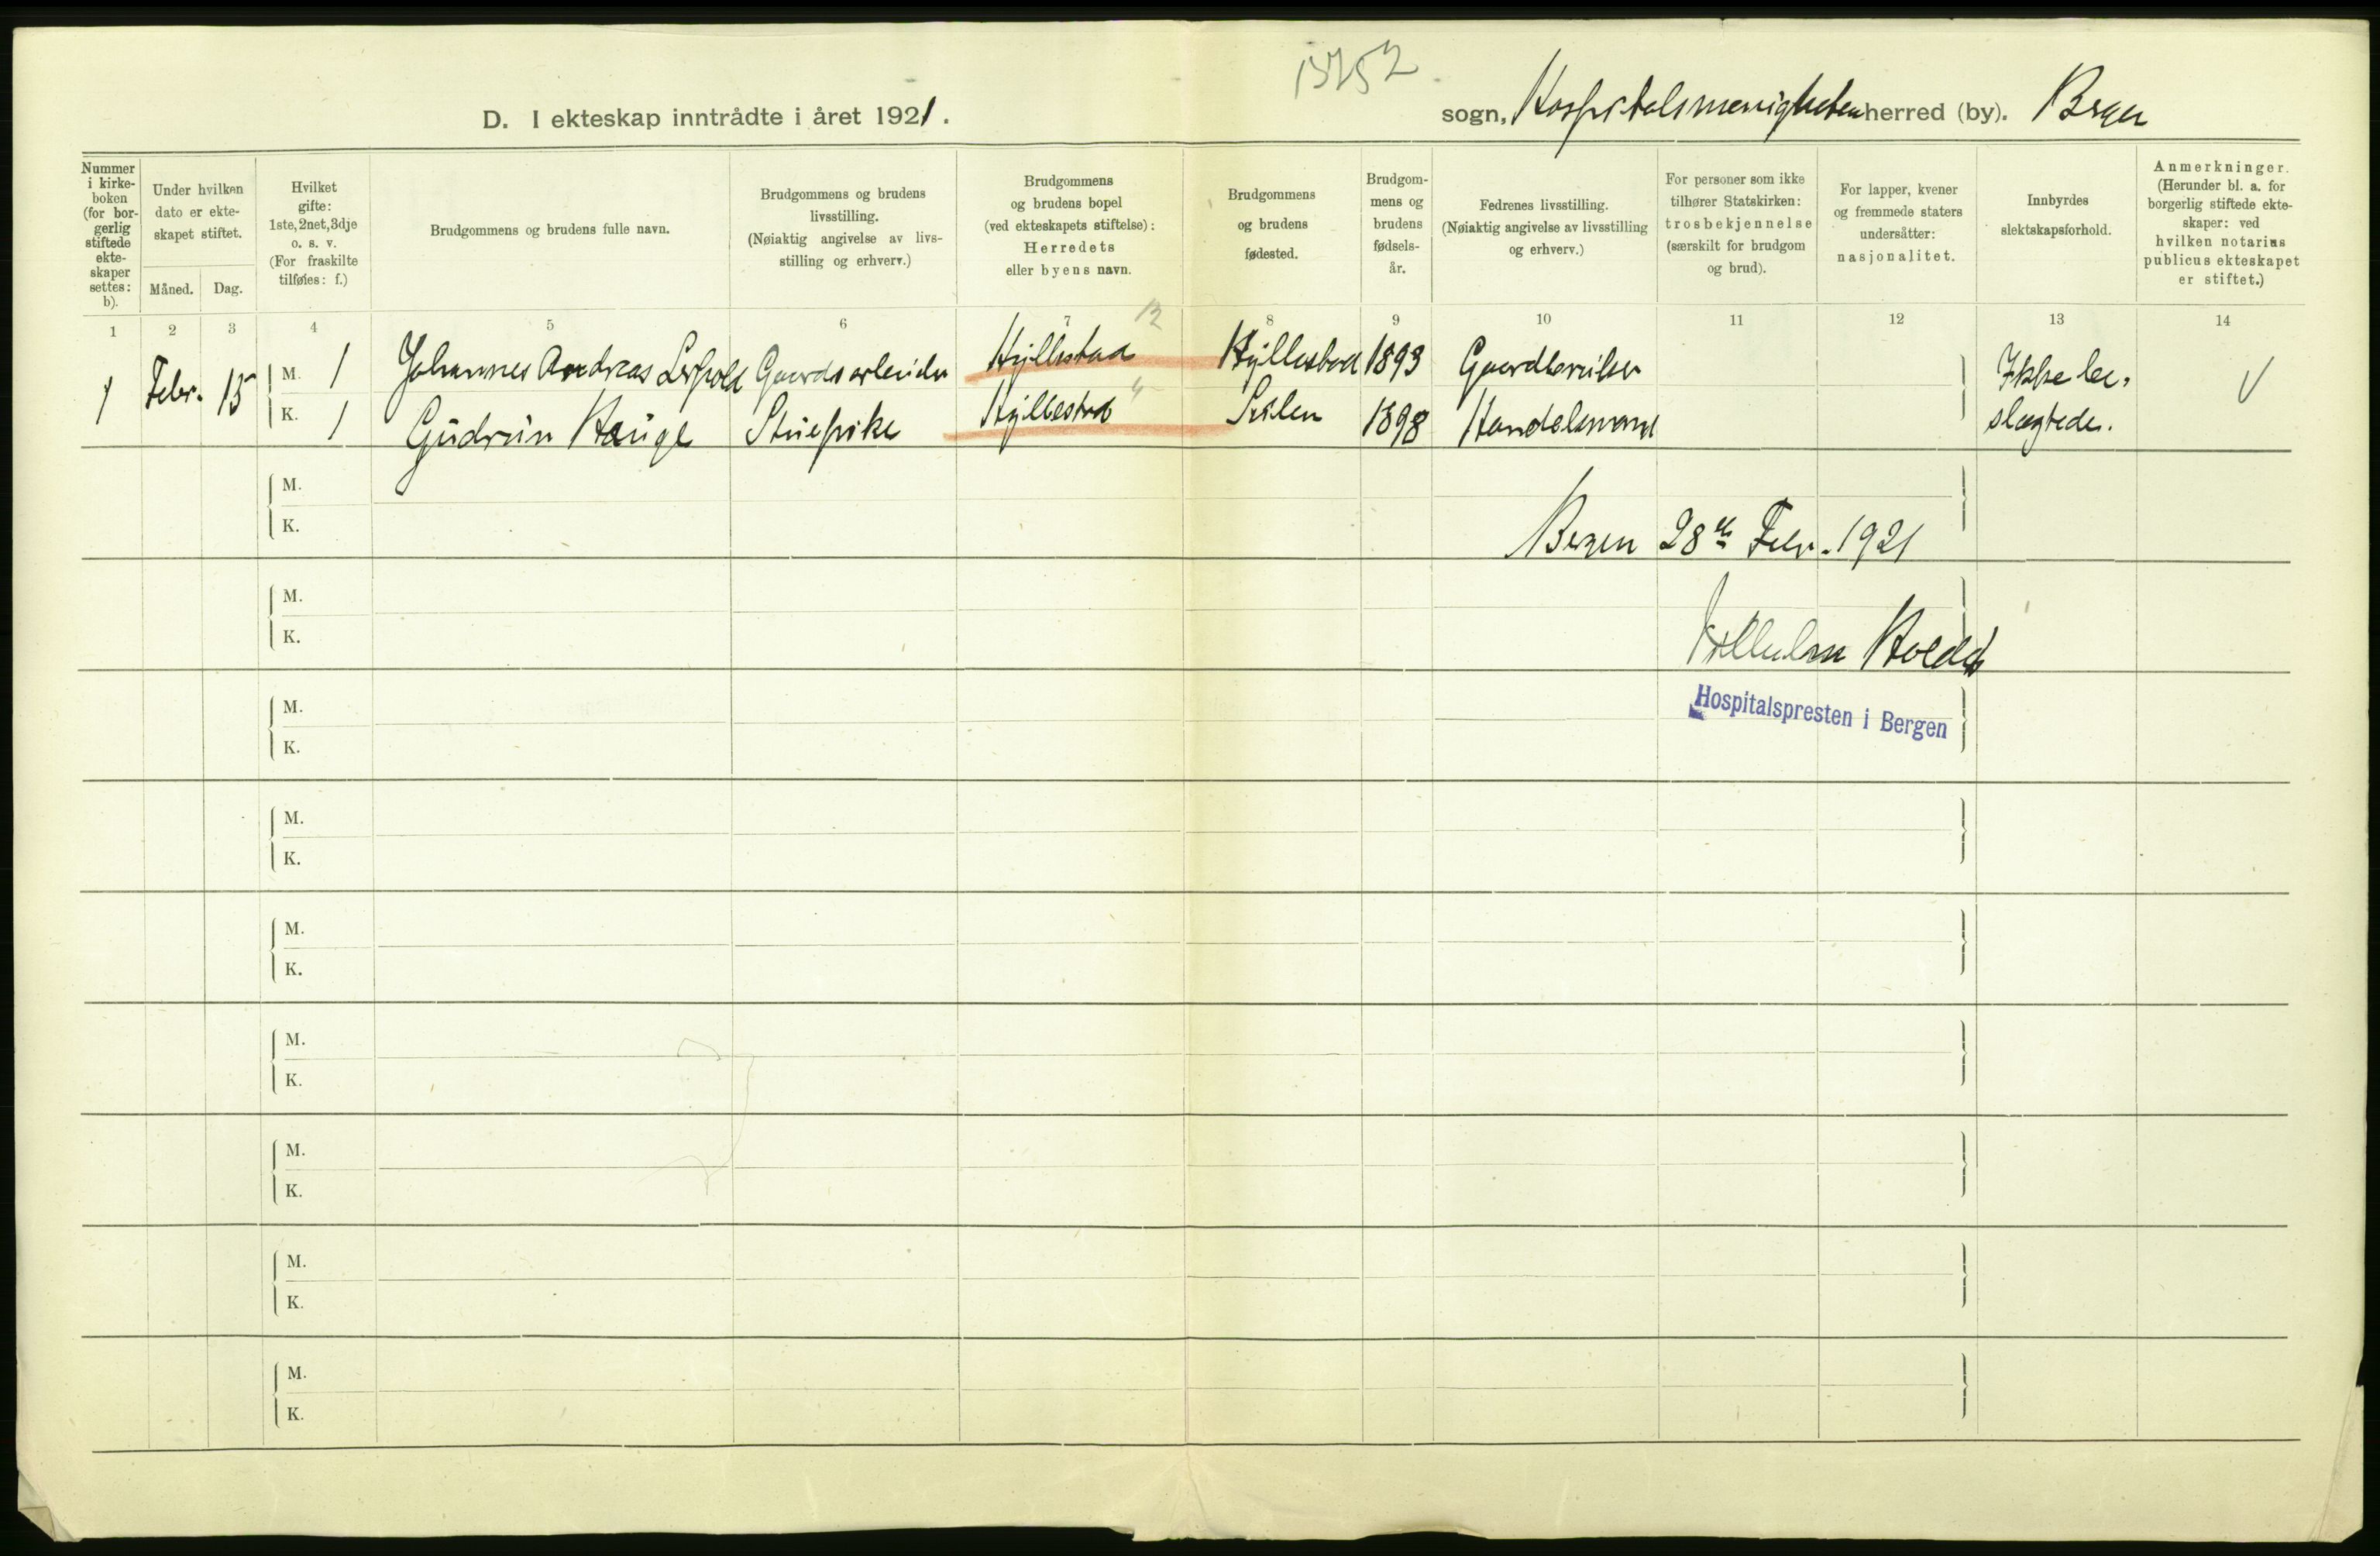 13252
D. I ekteskap inntrådte i året 1921.
sogn, Hospitalsmenigheten herred (by). Bergen
Nummer i kirke- boken (for bor- gerlig stiftede ekte- skaper settes: b).
Under hvilken dato er ekte- skapet stiftet.
Måned. Dag.
Hvilket gifte: 1ste, 2net, 3dje o. s. v. (For fraskilte tilføies: f.)
Brudgommens og brudens fulle navn.
Brudgommens og brudens livsstilling. (Nøiaktig angivelse av livs- stilling og erhverv.)
Brudgommens og brudens bopel (ved ekteskapets stiftelse): Herredets eller byens navn.
Brudgommens og brudens fødested.
Brudgom- mens og brudens fødsels- år.
Fedrenes livsstilling. (Nøiaktig angivelse av livsstilling og erhverv.)
For personer som ikke tilhører Statskirken: trosbekjennelse (særskilt for brudgom og brud).
For lapper, kvener og fremmede staters undersåtter: nasjonalitet.
Innbyrdes slektskapsforhold.
Anmerkninger. (Herunder bl. a. for borgerlig stiftede ekte- skaper: ved hvilken notarius publicus ekteskapet er stiftet.)
1 2 3 4 5 6 7 8 9 10 11 12 13 14
1 Febr. 15 M. 1 Johannes Andreas Gaardsarbeider Hyllestad Hyllestad 1893 Gaardbruker Ikke be-
K. 1 Gudrun Hauge Stuepike Hyllestad 1898 Handelsmand slægtede.
M.
K.
Bergen 28de Febr. 1921
M.
K.
Hospitalspresten i Bergen
M.
K.
M.
K.
M.
K.
M.
K.
M.
K.
M.
K.
M.
K.